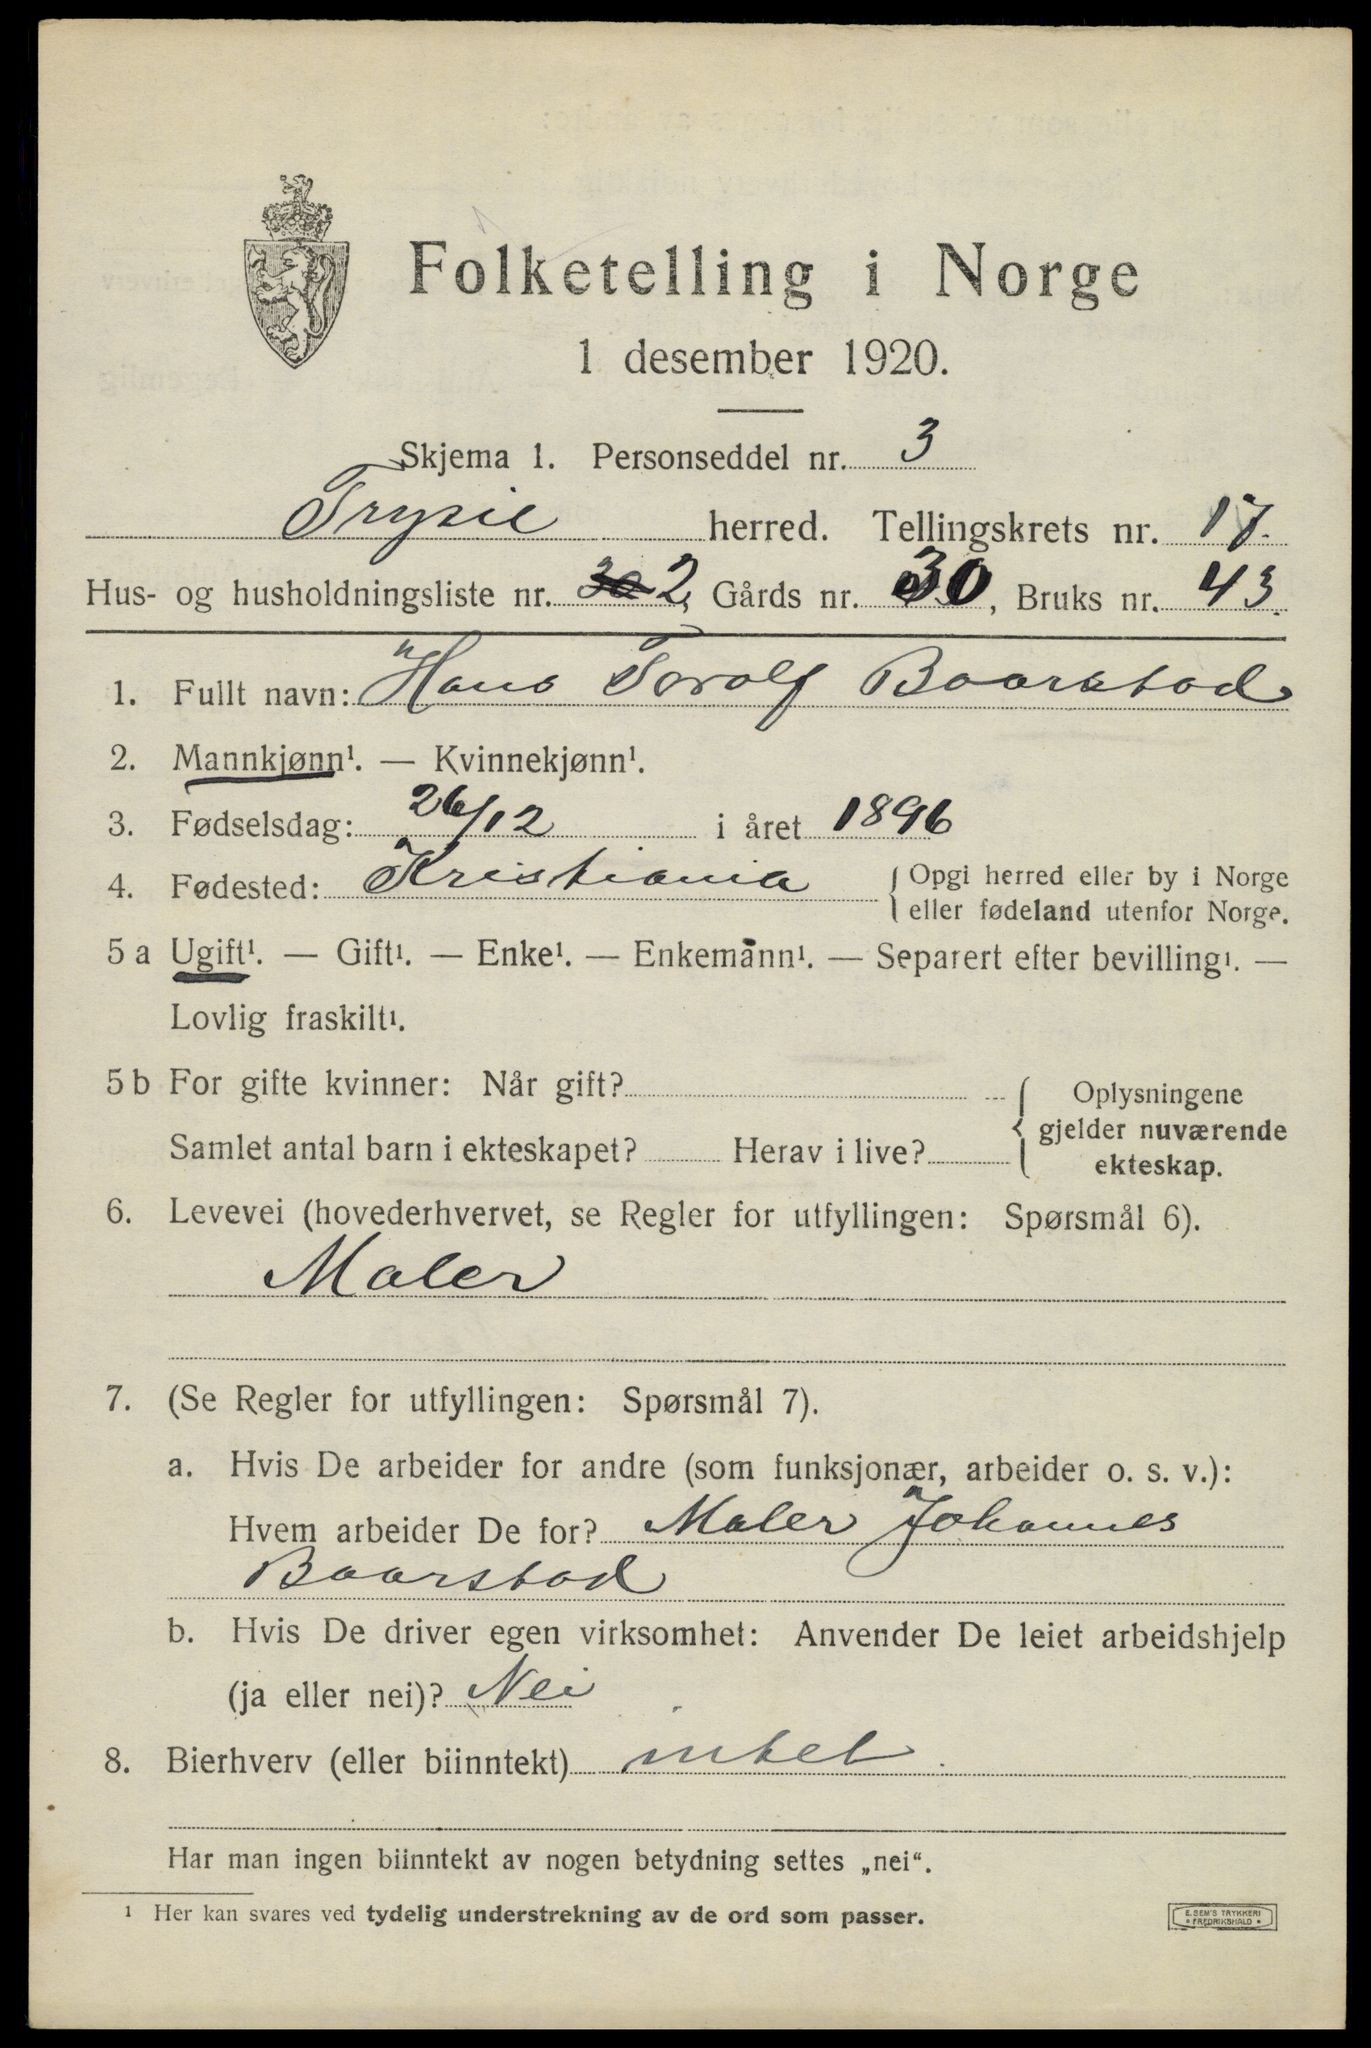 Folketelling i Norge
1 desember 1920.
Skjema 1. Personseddel nr. 3
Trysil herred. Tellingskrets nr. 17.
Hus- og husholdningsliste nr. 2, Gårds nr. 30, Bruks nr. 43.
1. Fullt navn: Hans Torolf Baarstad
2. Mannkjønn¹. — Kvinnekjønn¹.
3. Fødselsdag: 26/12 i året 1896
4. Fødested: Kristiania {Opgi herred eller by i Norge
eller fødeland utenfor Norge.
5 a Ugift¹. — Gift¹. — Enke¹. — Enkemann¹. — Separert efter bevilling¹. —
Lovlig fraskilt¹.
5 b For gifte kvinner: Når gift?
Samlet antal barn i ekteskapet? Herav i live?
{ Oplysningene
gjelder nuværende
ekteskap.
6. Levevei (hovederhvervet, se Regler for utfyllingen: Spørsmål 6).
Maler
7. (Se Regler for utfyllingen: Spørsmål 7).
a. Hvis De arbeider for andre (som funksjonær, arbeider o. s. v.):
Hvem arbeider De for? Maler Johannes
Baarstad
b. Hvis De driver egen virksomhet: Anvender De leiet arbeidshjelp
(ja eller nei)? Nei
8. Bierhverv (eller biinntekt) intet.
Har man ingen biinntekt av nogen betydning settes „nei“.
¹ Her kan svares ved tydelig understrekning av de ord som passer.
E. SEM'S TRYKKERI
• FREDRIKSHALD •